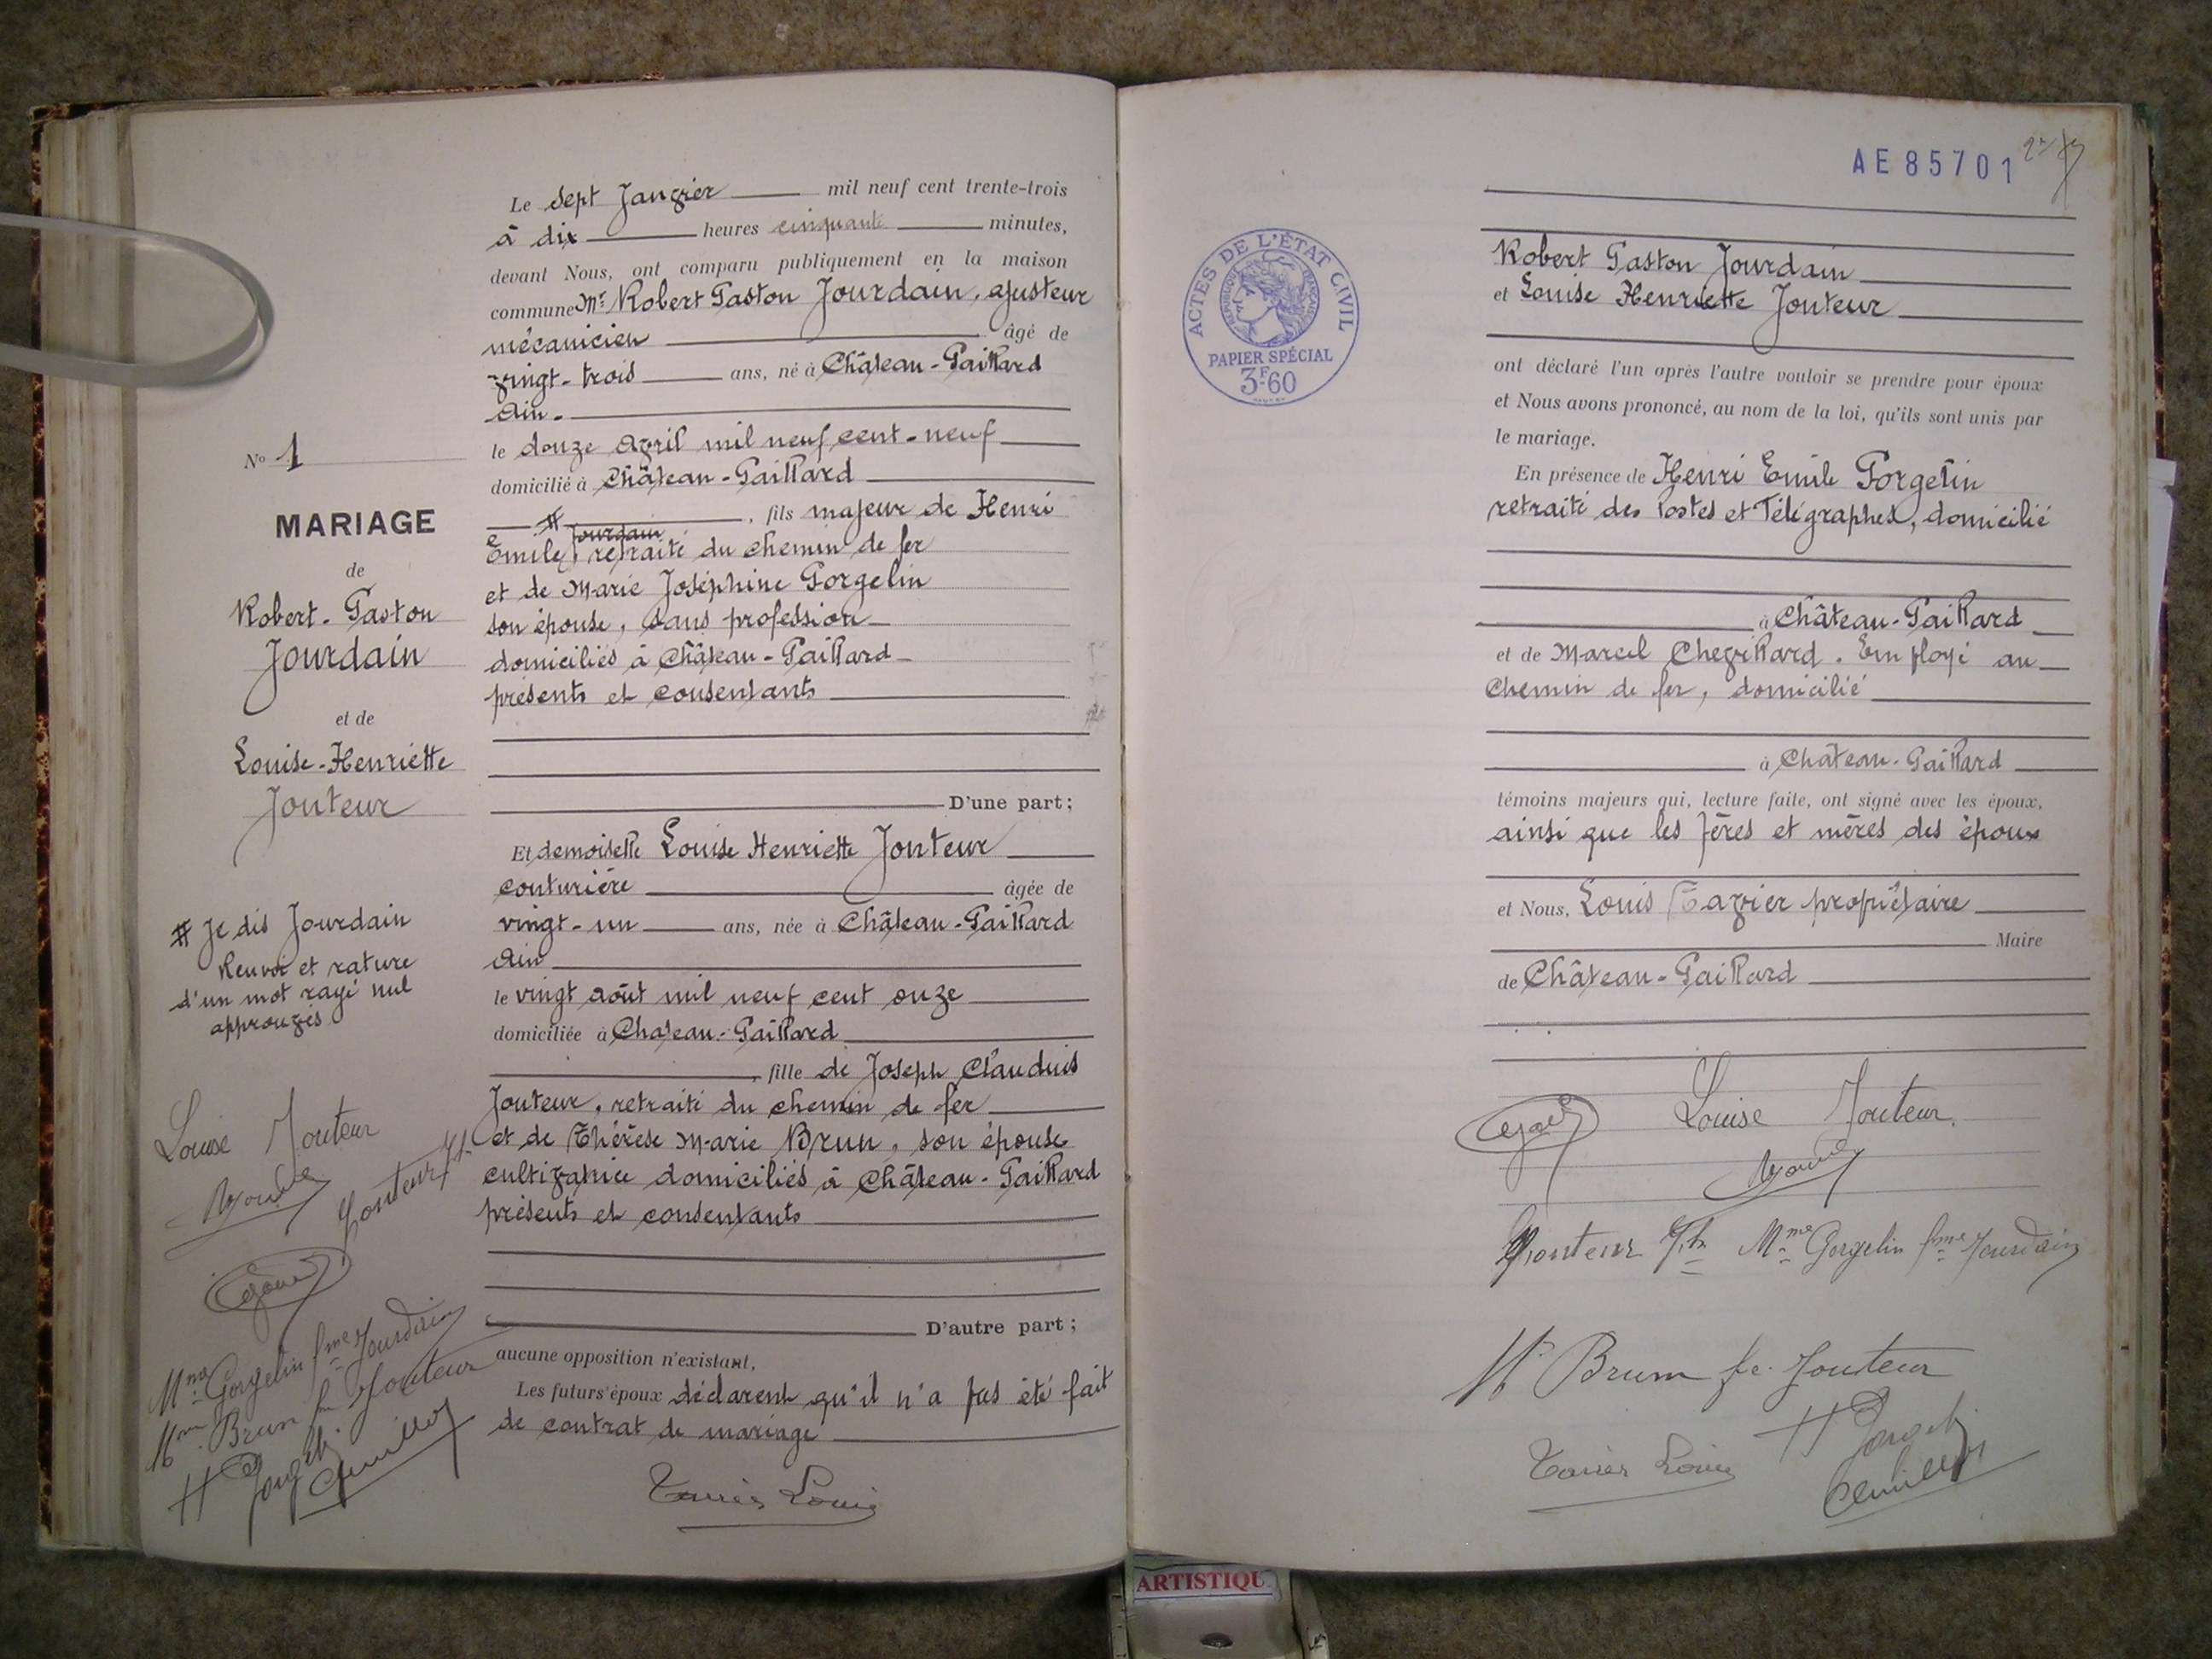 Le sept Janvier mil neuf cent trente-trois
à dix heures cinquante minutes,
devant Nous, ont comparu publiquement en la maison
commune Mr Robert Gaston Jourdain, ajusteur
mécanicien âgé de
vingt-trois ans, né à Château-Gaillard
Ain.
le douze Avril mil neuf cent-neuf
domicilié à Château-Gaillard
#, fils majeur de Henri
Jourdain
Emile, retraité du chemin de fer
et de Marie Joséphine Gorgelin
son épouse, sans profession
domiciliés à Château-Gaillard
présents et consentants
D'une part;
Et demoiselle Louise Henriette Jouteur
couturière âgée de
vingt-un ans, née à Château-Gaillard
Ain
le vingt août mil neuf cent onze
domiciliée à Chateau-Gaillard
, fille de Joseph Claudius
Jouteur, retraité du chemin de fer
et de Thérèse Marie Brun, son épouse
cultivatrice domiciliés à Château-Gaillard
présents et consentants
D'autre part;
aucune opposition n'existant,
Les futurs époux déclarent qu'il n'a pas été fait
de contrat de mariage
Louis
No 1
MARIAGE
de
Robert-Gaston
Jourdain
et de
Louise-Henriette
Jouteur
# Je dis Jourdain
Renvoi et rature
d'un mot rayé nul
approuvés
Louise Jouteur
Jouteur
Mme Gorgelin fme Jourdain
Mme Brun fe Jouteur
H Gorgelin
AE 85701
ACTES DE L'ÉTAT CIVIL
RÉPUBLIQUE FRANÇAISE
PAPIER SPÉCIAL
3F60
Robert Gaston Jourdain
et Louise Henriette Jouteur
ont déclaré l'un après l'autre vouloir se prendre pour époux
et Nous avons prononcé, au nom de la loi, qu'ils sont unis par
le mariage.
En présence de Henri Emile Gorgelin
retraité des Postes et Télégraphes, domicilié
à Château-Gaillard
et de Marcel Chevillard. Employé au
Chemin de fer, domicilié
à Château-Gaillard
témoins majeurs qui, lecture faite, ont signé avec les époux,
ainsi que les pères et mères des époux
et Nous, Louis Tavier propriétaire
Maire
de Château-Gaillard
Louise Jouteur.
Jouteur Mme Gorgelin fme Jourdain
Brun fe. Jouteur
H Gorgelin
Louis
ARTISTIQU